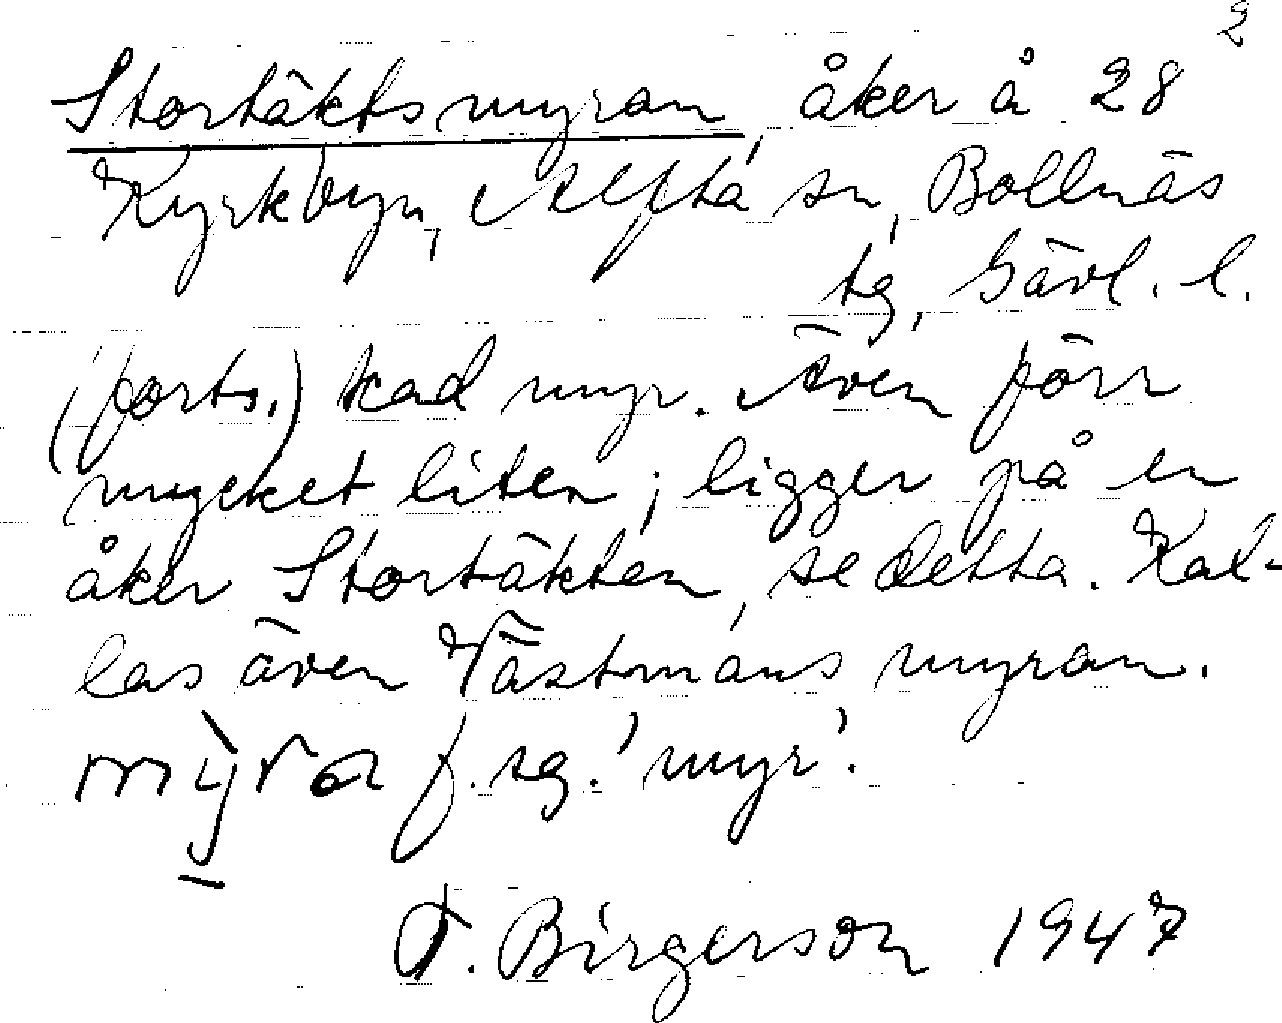 2
Stortäktsmyran, åker å 28
Kyrkbyn, Alfta sn, Bollnäs
tg, Gävl. l.
(forts.) kad myr. Även förr
mycket liten; ligger på en
åker Stortäkten, se detta. Kal-
las även Västmans myran.
mỳra f. sg. 'myr'.
T. Birgerson 1947